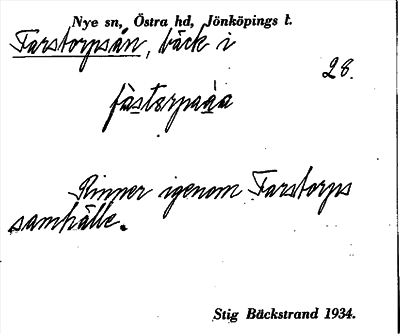 Nye sn, Östra hd, Jönköpings l.
Farstorpsån, bäck i
28.
fàstərpaa̱a
Rinner igenom Farstorps
samhälle.
Stig Bäckstrand 1934.